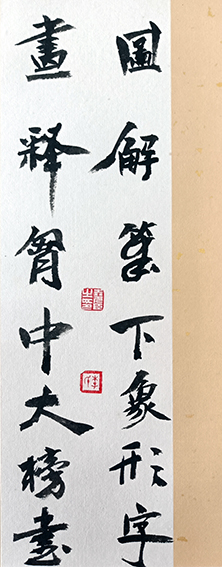 圖解筆下象形字
畫釋胷中大榜書